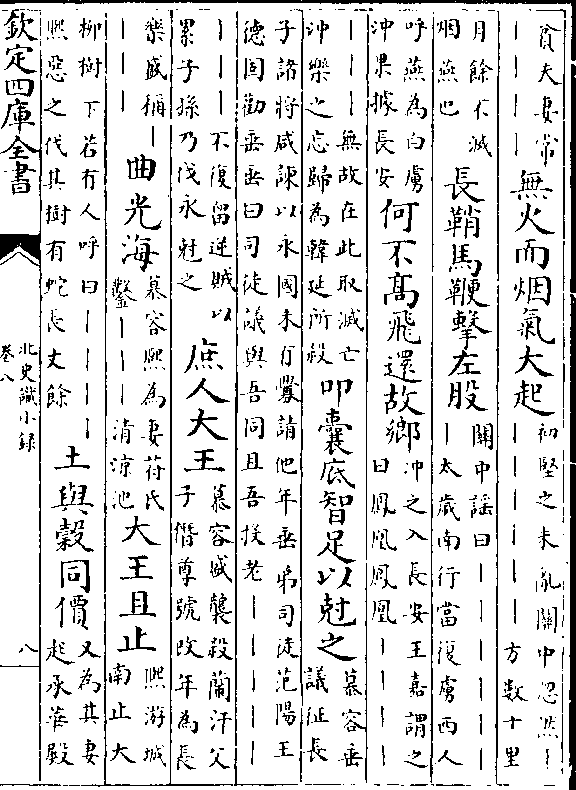 貧夫妻常
丨丨丨丨
無火而烟氣大起
初堅之末亂關中忽然丨
丨丨丨丨丨丨方數十里
月餘不滅
烟燕也
長鞘馬鞭擊左股
關中謡曰丨丨丨丨丨
丨丨太歲南行當復虜西人
呼燕為白虜
沖果據長安
何不髙飛還故鄉
沖之入長安王嘉謂之
曰鳳凰鳳凰丨丨丨丨
丨丨丨無故在此取滅亡
沖樂之忘歸為韓延所殺
叩囊底智足以尅之
慕容垂
議征長
子諸將咸諫以永國未有釁請他年垂弟司徒范陽王
德固勸垂垂曰司徒議與吾同且吾投老丨丨丨丨
丨丨丨丨不復留逆賊以
累子孫乃伐永尅之
庶人大王
慕容盛襲殺蘭汗父
子僭尊號改年為長
樂盛稱丨
丨丨丨
曲光海
慕容熙為妻苻氏
鑿丨丨丨清凉池
大王且止
熙游城
南止大
柳樹下若有人呼曰丨丨丨丨
熙惡之伐其樹有蛇長丈餘
土與穀同價
又為其妻
起承華殿
欽定四庫全書
北史識小録
卷八
八